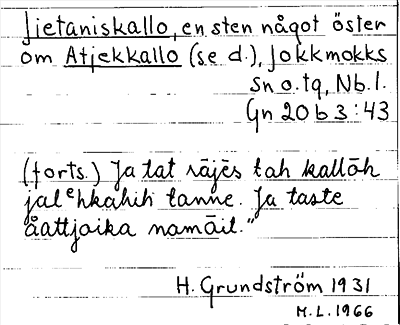 Jietaniskallo, en sten något öster
om Atjekkallo (se d.), Jokkmokks
sn o. tg, Nb. l.
Gn 20 b 3:43
(forts.) Ja tat rājēs tah kallōh
jalᵉhkahih tanne. Ja taste
åattjoika namāit."
H. Grundström 1931
M.L. 1966